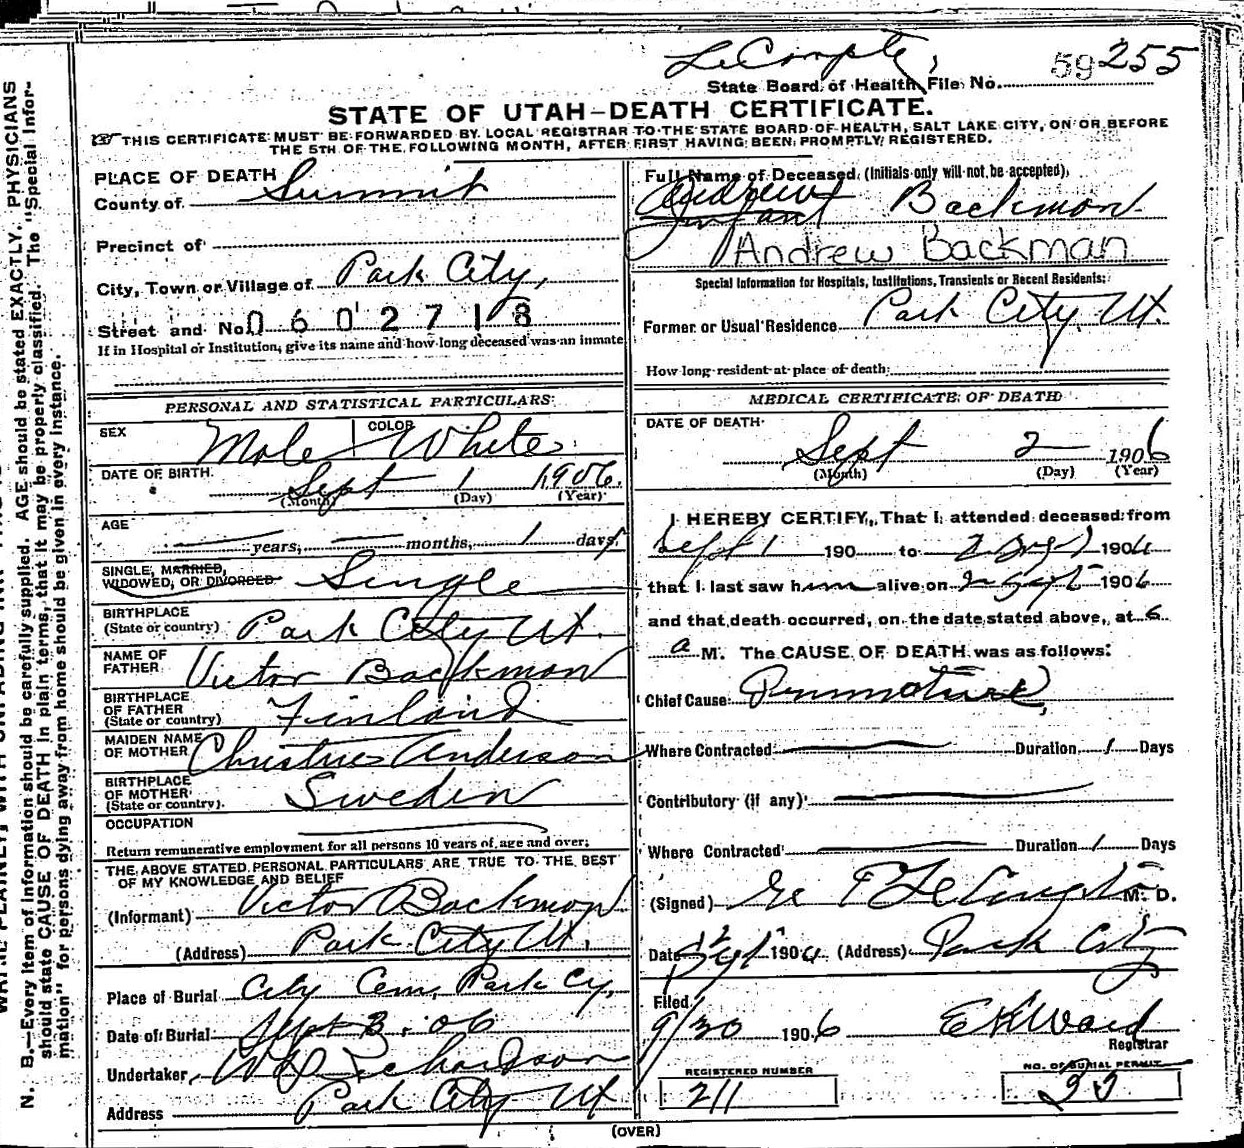 LeCompte,
59 255
State Board of Health File No.
STATE OF UTAH-DEATH CERTIFICATE.
☞ THIS CERTIFICATE MUST BE FORWARDED BY LOCAL REGISTRAR TO THE STATE BOARD OF HEALTH, SALT LAKE CITY, ON OR BEFORE
THE 5TH OF THE FOLLOWING MONTH, AFTER FIRST HAVING BEEN PROMPTLY REGISTERED.
PLACE OF DEATH
County of Summit
Precinct of
City, Town or Village of Park City,
Street and No. 0602718
If in Hospital or Institution, give its name and how long deceased was an inmate
Full Name of Deceased (Initials only will not be accepted)
Andrew
Infant Backman
Andrew Backman
Special Information for Hospitals, Institutions, Transients or Recent Residents:
Former or Usual Residence Park City, Ut.
How long resident at place of death:
PERSONAL AND STATISTICAL PARTICULARS:
SEX Male COLOR White
DATE OF BIRTH Sept 1 1906.
(Month) (Day) (Year)
AGE years, months, 1 days
SINGLE, MARRIED,
WIDOWED, OR DIVORCED Single
BIRTHPLACE
(State or country) Park City Ut.
NAME OF
FATHER Victor Backman
BIRTHPLACE
OF FATHER
(State or country) Finland
MAIDEN NAME
OF MOTHER Christine Anderson
BIRTHPLACE
OF MOTHER
(State or country). Sweden
OCCUPATION
Return remunerative employment for all persons 10 years of age and over;
THE ABOVE STATED PERSONAL PARTICULARS ARE TRUE TO THE BEST
OF MY KNOWLEDGE AND BELIEF
(Informant) Victor Backman
(Address) Park City Ut.
Place of Burial City Cem, Park Cy,
Date of Burial Sept 3, 06
Undertaker, W D Richardson
Address Park City Ut
MEDICAL CERTIFICATE OF DEATH
DATE OF DEATH
Sept 2 1906
(Month) (Day) (Year)
I HEREBY CERTIFY, That I attended deceased from
Sept 1 190 to 2 Sept 1906
that I last saw him alive on 2 Sept 1906
and that death occurred, on the date stated above, at 6
a M. The CAUSE OF DEATH was as follows:
Chief Cause Premature,
Where Contracted Duration 1 Days
Contributory (if any)
Where Contracted Duration 1 Days
(Signed) LeCompte M. D.
Date 2 Sept 1906 (Address) Park City
Filed
9/30 1906 E K Ward
Registrar
REGISTERED NUMBER
211
NO. OF BURIAL PERMIT
33
(OVER)
N. B.—Every item of information should be carefully supplied. AGE should be stated EXACTLY. PHYSICIANS
should state CAUSE OF DEATH in plain terms, that it may be properly classified. The "Special Infor-
mation" for persons dying away from home should be given in every instance.